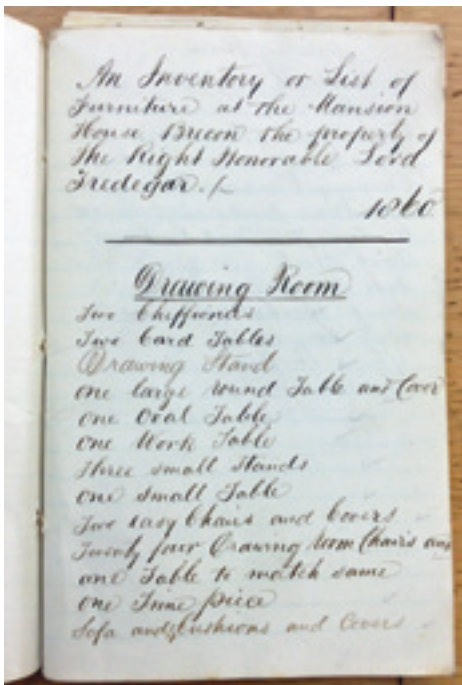 An Inventory or List of
Furniture at the Mansion
House Brecon the property of
The Right Honorable Lord
Tredegar./-
1860
Drawing Room
Two Cheffioners
Two Card Tables
Drawing Stand
one large round Table and Cover
one Oval Table
one Work Table
Three small Stands
one small Table
Two easy Chairs and Covers
Twenty four Drawing room Chairs and
one Table to match same
one Time piece
Sofa and Cushions and Covers